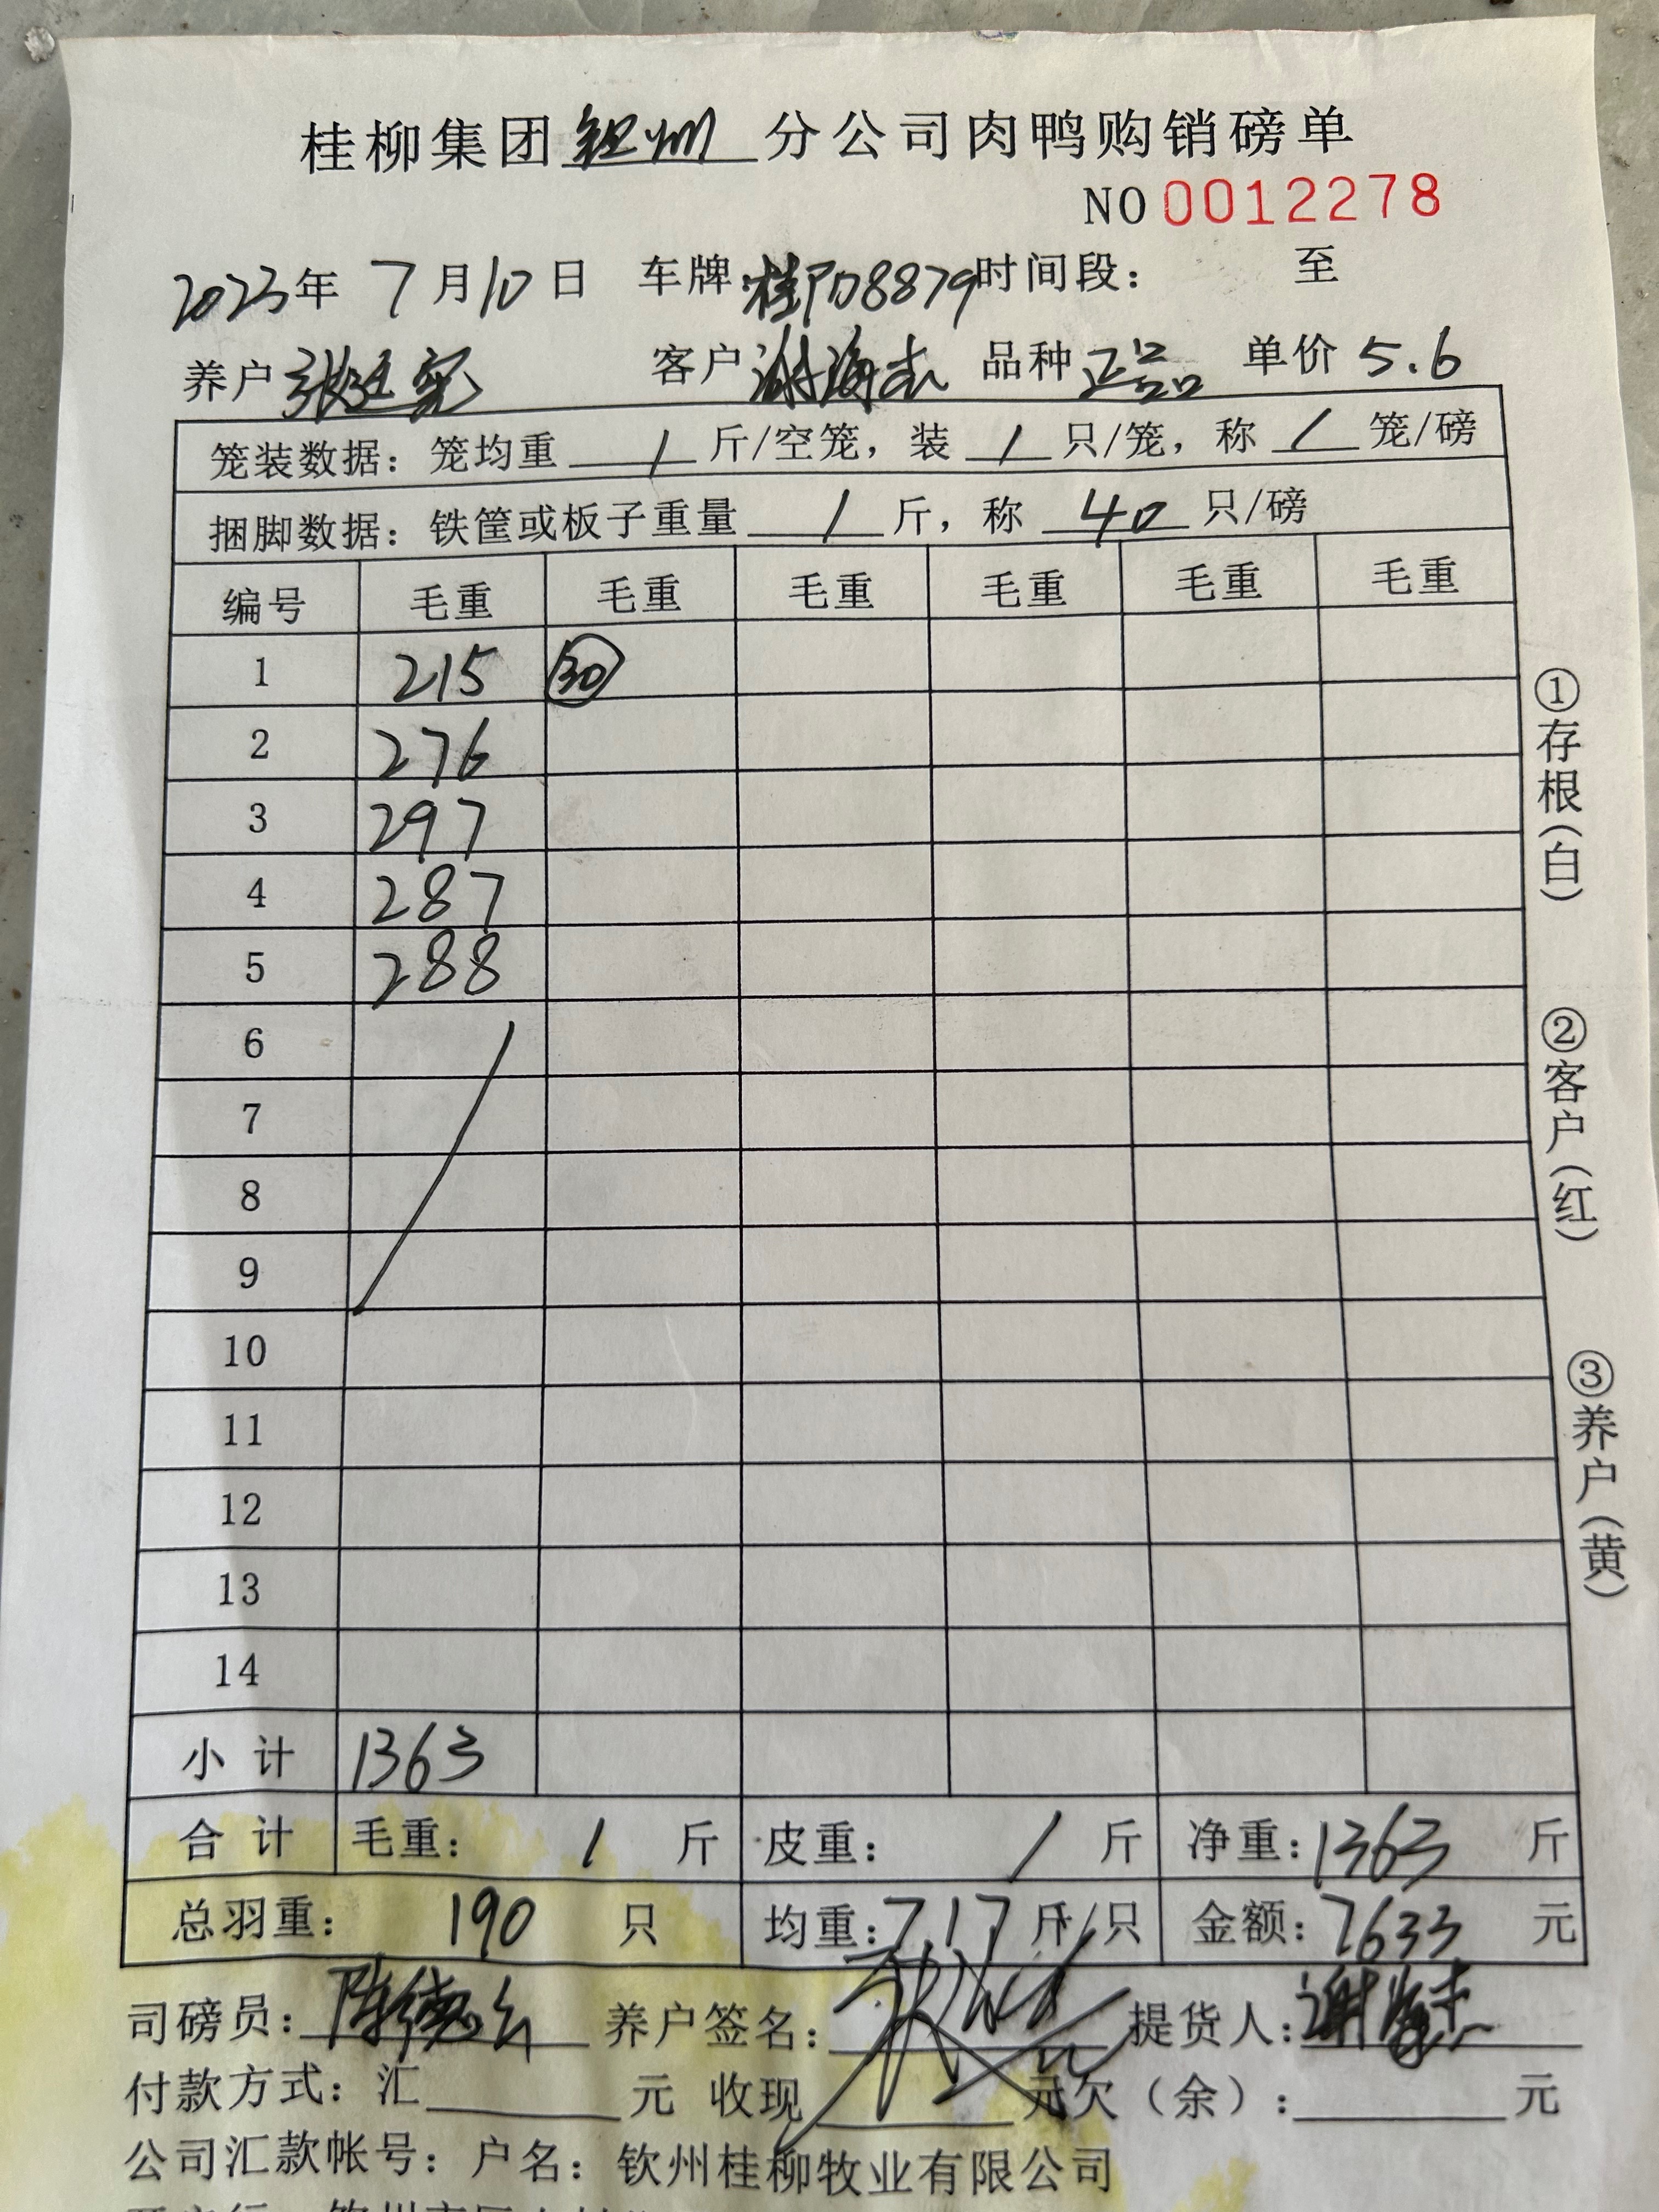 桂柳集团钦州分公司肉鸭购销磅单
NO 0012278
2023年 7月10日 车牌:桂PD8879 时间段: 至
养户 张廷宪 客户 谢海志 品种 正品 单价 5.6
笼装数据: 笼均重 / 斤/空笼, 装 / 只/笼, 称 / 笼/磅
捆脚数据: 铁筐或板子重量 / 斤, 称 40 只/磅
编号 毛重 毛重 毛重 毛重 毛重 毛重
1 215 30
2 276
3 297
4 287
5 288
6
7
8
9
10
11
12
13
14
小计 1363
合计 毛重: / 斤 皮重: / 斤 净重: 1363 斤
总羽重: 190 只 均重: 7.17 斤/只 金额: 7633 元
司磅员: 养户签名: 提货人: 谢海志
付款方式: 汇 元 收现 元 欠(余): 元
公司汇款帐号: 户名: 钦州桂柳牧业有限公司
①存根(白)
②客户(红)
③养户(黄)